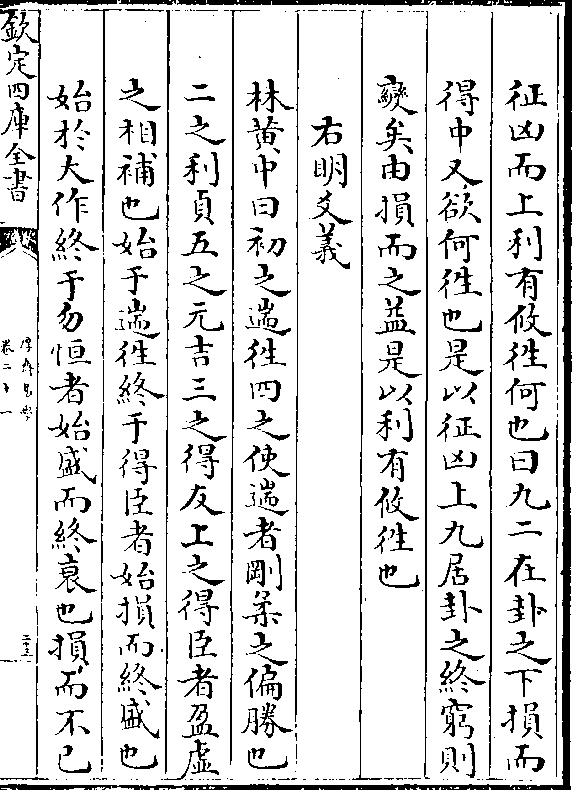 征凶而上利有攸徃何也曰九二在卦之下損而
得中又欲何徃也是以征凶上九居卦之終窮則
變矣由損而之益是以利有攸徃也
右明爻義
林黄中曰初之遄徃四之使遄者剛柔之偏勝也
二之利貞五之元吉三之得友上之得臣者盈虚
之相補也始于遄徃終于得臣者始損而終盛也
始於大作終于勿恒者始盛而終衰也損而不已
欽定四庫全書
卷二十一